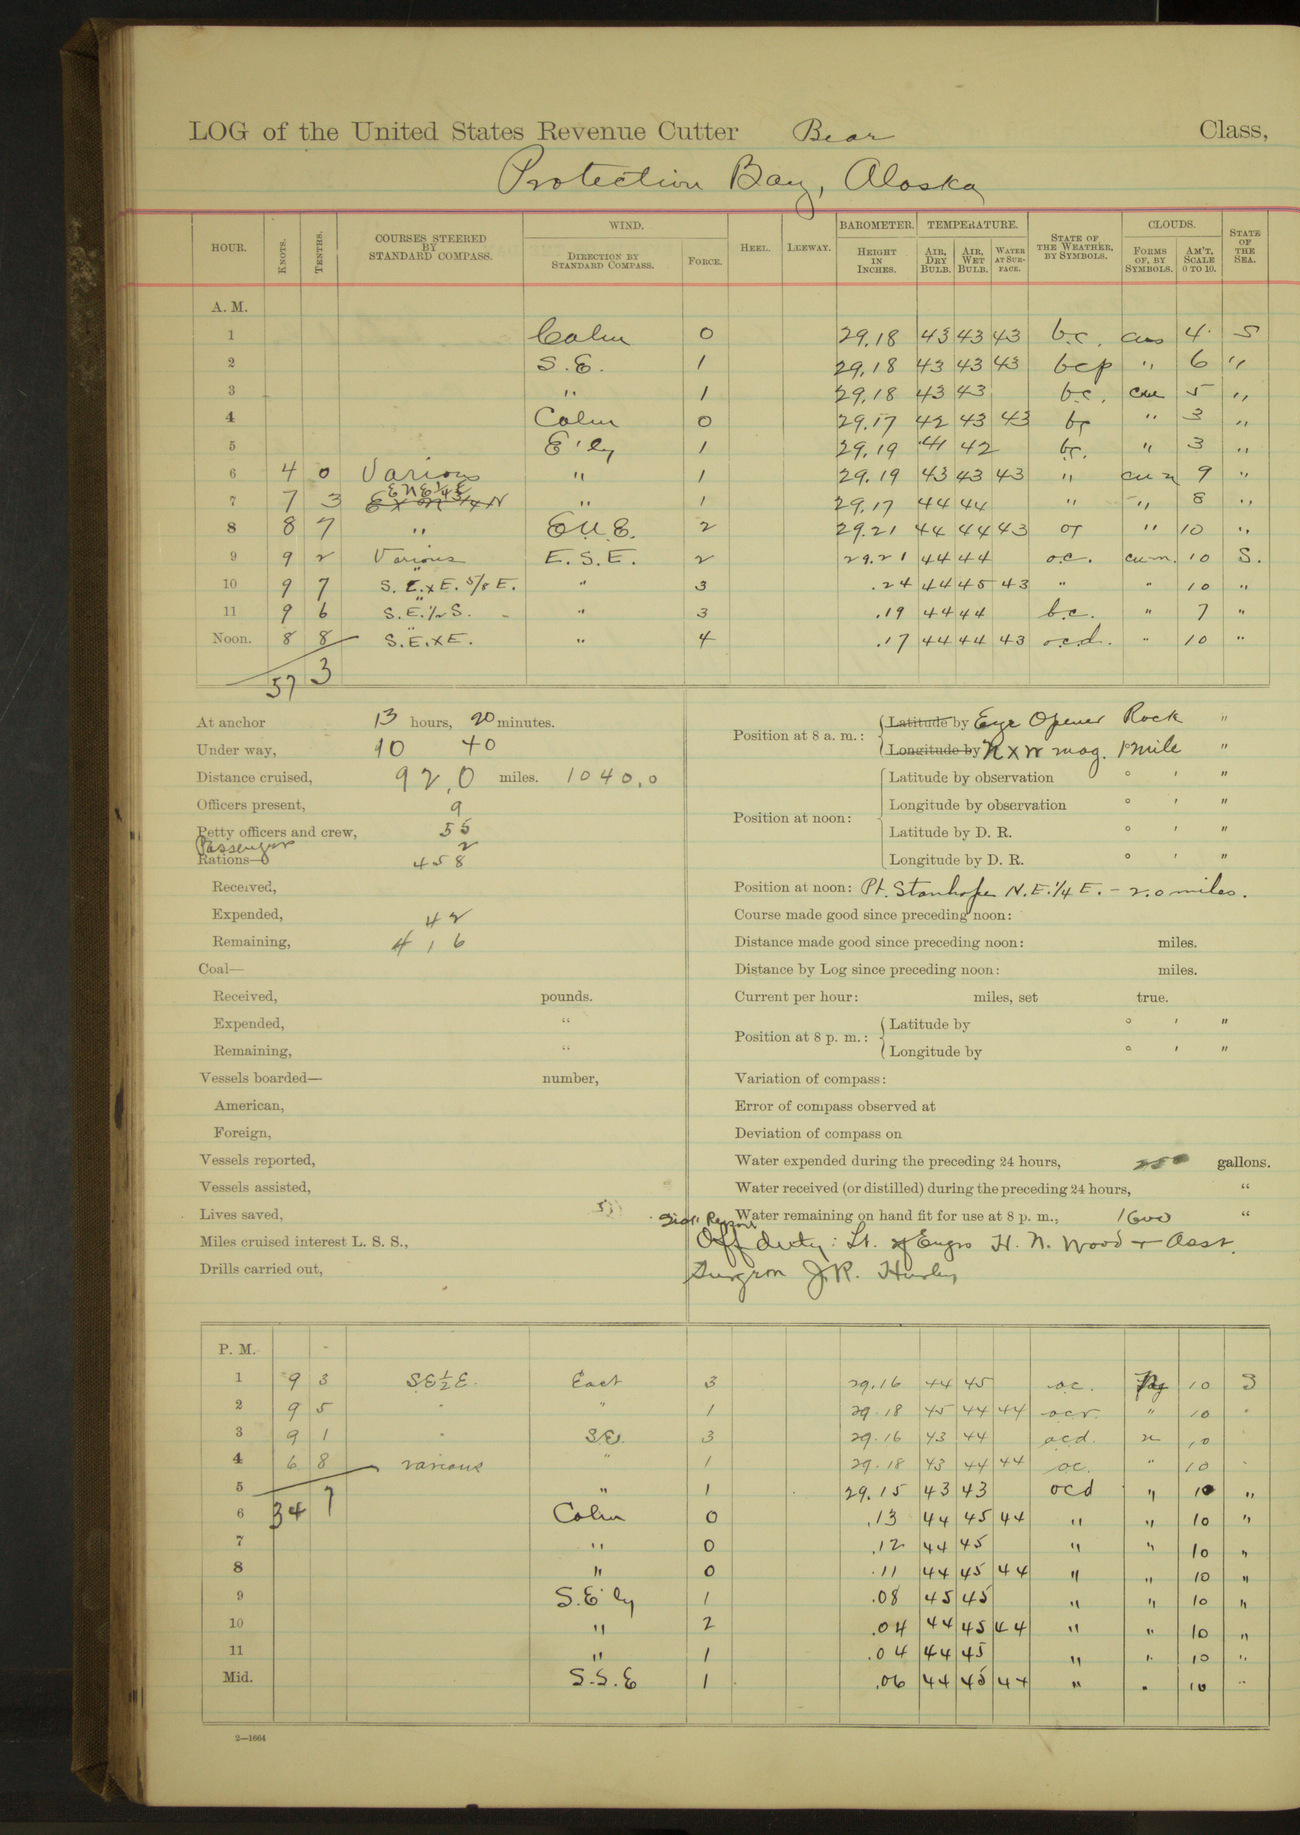 LOG of the United States Revenue Cutter Bear Class,
Protection Bay, Alaska
HOUR. KNOTS. TENTHS. COURSES STEERED BY STANDARD COMPASS. WIND. DIRECTION BY STANDARD COMPASS. FORCE. HEEL. LEEWAY. BAROMETER. HEIGHT IN INCHES. TEMPERATURE. AIR, DRY BULB. AIR, WET BULB. WATER AT SURFACE. STATE OF THE WEATHER, BY SYMBOLS. CLOUDS. FORMS OF, BY SYMBOLS. AM'T, SCALE 0 TO 10. STATE OF THE SEA.
A. M.
1 Calm 0 29.18 43 43 43 b.c. cus 4 S
2 S.E. 1 29.18 43 43 43 bcp " 6 "
3 " 1 29.18 43 43 b.c. cus 5 "
4 Calm 0 29.17 42 43 43 bc " 3 "
5 E'ly 1 29.19 41 42 bc. " 3 "
6 4 0 Various " 1 29.19 43 43 43 " cu n 9 "
7 7 3 E N E 1/4 E " 1 29.17 44 44 " " 8 "
8 8 7 " E.N.E. 2 29.21 44 44 43 or " 10 "
9 9 2 Various E.S.E. 2 29.21 44 44 o.c. cu-n. 10 S.
10 9 7 S.E.xE. 5/8 E. " 3 .24 44 45 43 " " 10 "
11 9 6 S.E. 1/2 S. " 3 .19 44 44 b.c. " 7 "
Noon. 8 8 S.E.xE. " 4 .17 44 44 43 o.c.d. " 10 "
57 3
At anchor 13 hours, 20 minutes.
Under way, 10 40
Distance cruised, 92,0 miles. 1040,0
Officers present, 9
Petty officers and crew, 55
Passenger 2
Rations— 458
Received,
Expended, 42
Remaining, 416
Coal—
Received, pounds.
Expended, "
Remaining, "
Vessels boarded— number,
American,
Foreign,
Vessels reported,
Vessels assisted,
Lives saved,
Miles cruised interest L. S. S.,
Drills carried out,
Position at 8 a. m.: Latitude by Eye Opener Rock "
Longitude by N x W mag. 1 mile "
Position at noon: Latitude by observation ° ' "
Longitude by observation ° ' "
Latitude by D. R. ° ' "
Longitude by D. R. ° ' "
Position at noon: Pt. Stanhope N.E. 1/4 E. - 2.0 miles.
Course made good since preceding noon:
Distance made good since preceding noon: miles.
Distance by Log since preceding noon: miles.
Current per hour: miles, set true.
Position at 8 p. m.: Latitude by ° ' "
Longitude by ° ' "
Variation of compass:
Error of compass observed at
Deviation of compass on
Water expended during the preceding 24 hours, 250 gallons.
Water received (or distilled) during the preceding 24 hours, "
Water remaining on hand fit for use at 8 p. m., 1600 "
Sick Report
Off duty: Lt. of Engrs H. N. Wood + Asst.
Surgeon J.R. Hurley
P. M.
1 9 3 SE 1/2 E. East 3 29.16 44 45 oc. Fog 10 S
2 9 5 " " 1 29.18 45 44 44 ocr. " 10 "
3 9 1 " SE. 3 29.16 43 44 ocd. n 10
4 6 8 various " 1 29.18 43 44 44 oc. " 10 "
5 " 1 29.15 43 43 ocd " 10 "
34 7
6 Calm 0 .13 44 45 44 " " 10 "
7 " 0 .12 44 45 " " 10 "
8 " 0 .11 44 45 44 " " 10 "
9 S.E'ly 1 .08 45 45 " " 10 "
10 " 2 .04 44 45 44 " " 10 "
11 " 1 .04 44 45 " " 10 "
Mid. S.S.E 1 .06 44 45 44 " " 10 "
2—1664